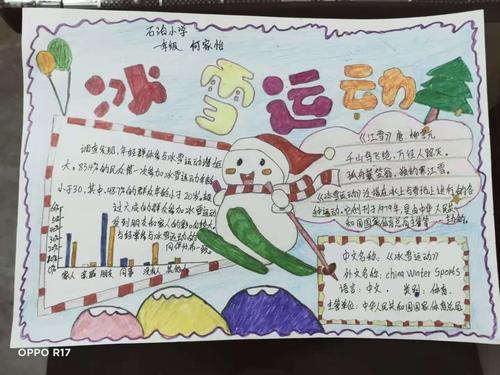 石泊小学
一年级 何家怡
冰雪运动
调查发现,年轻群体参与冰雪运动潜在
大。83.4%的民众第一次参加冰雪运动年龄
小于30,其中,48.7%的群众年龄小于20岁。超
过六成的群众参加冰雪运动
受到朋友和家人的
与
家人 亲戚 朋友 同事 没有人 其他
《江雪》唐 柳宗元
千山鸟飞绝,万径人踪灭。
孤舟蓑笠翁,独钓寒江雪。
《冰雪运动》是指在冰上与雪地上进行的各
种运动。
和国国家体育总局主管
中文名称:《冰雪运动》
外文名称:china Winter Sports
语言:中文. 类别:体育.
主管单位:中华人民共和国国家体育总局
OPPO R17